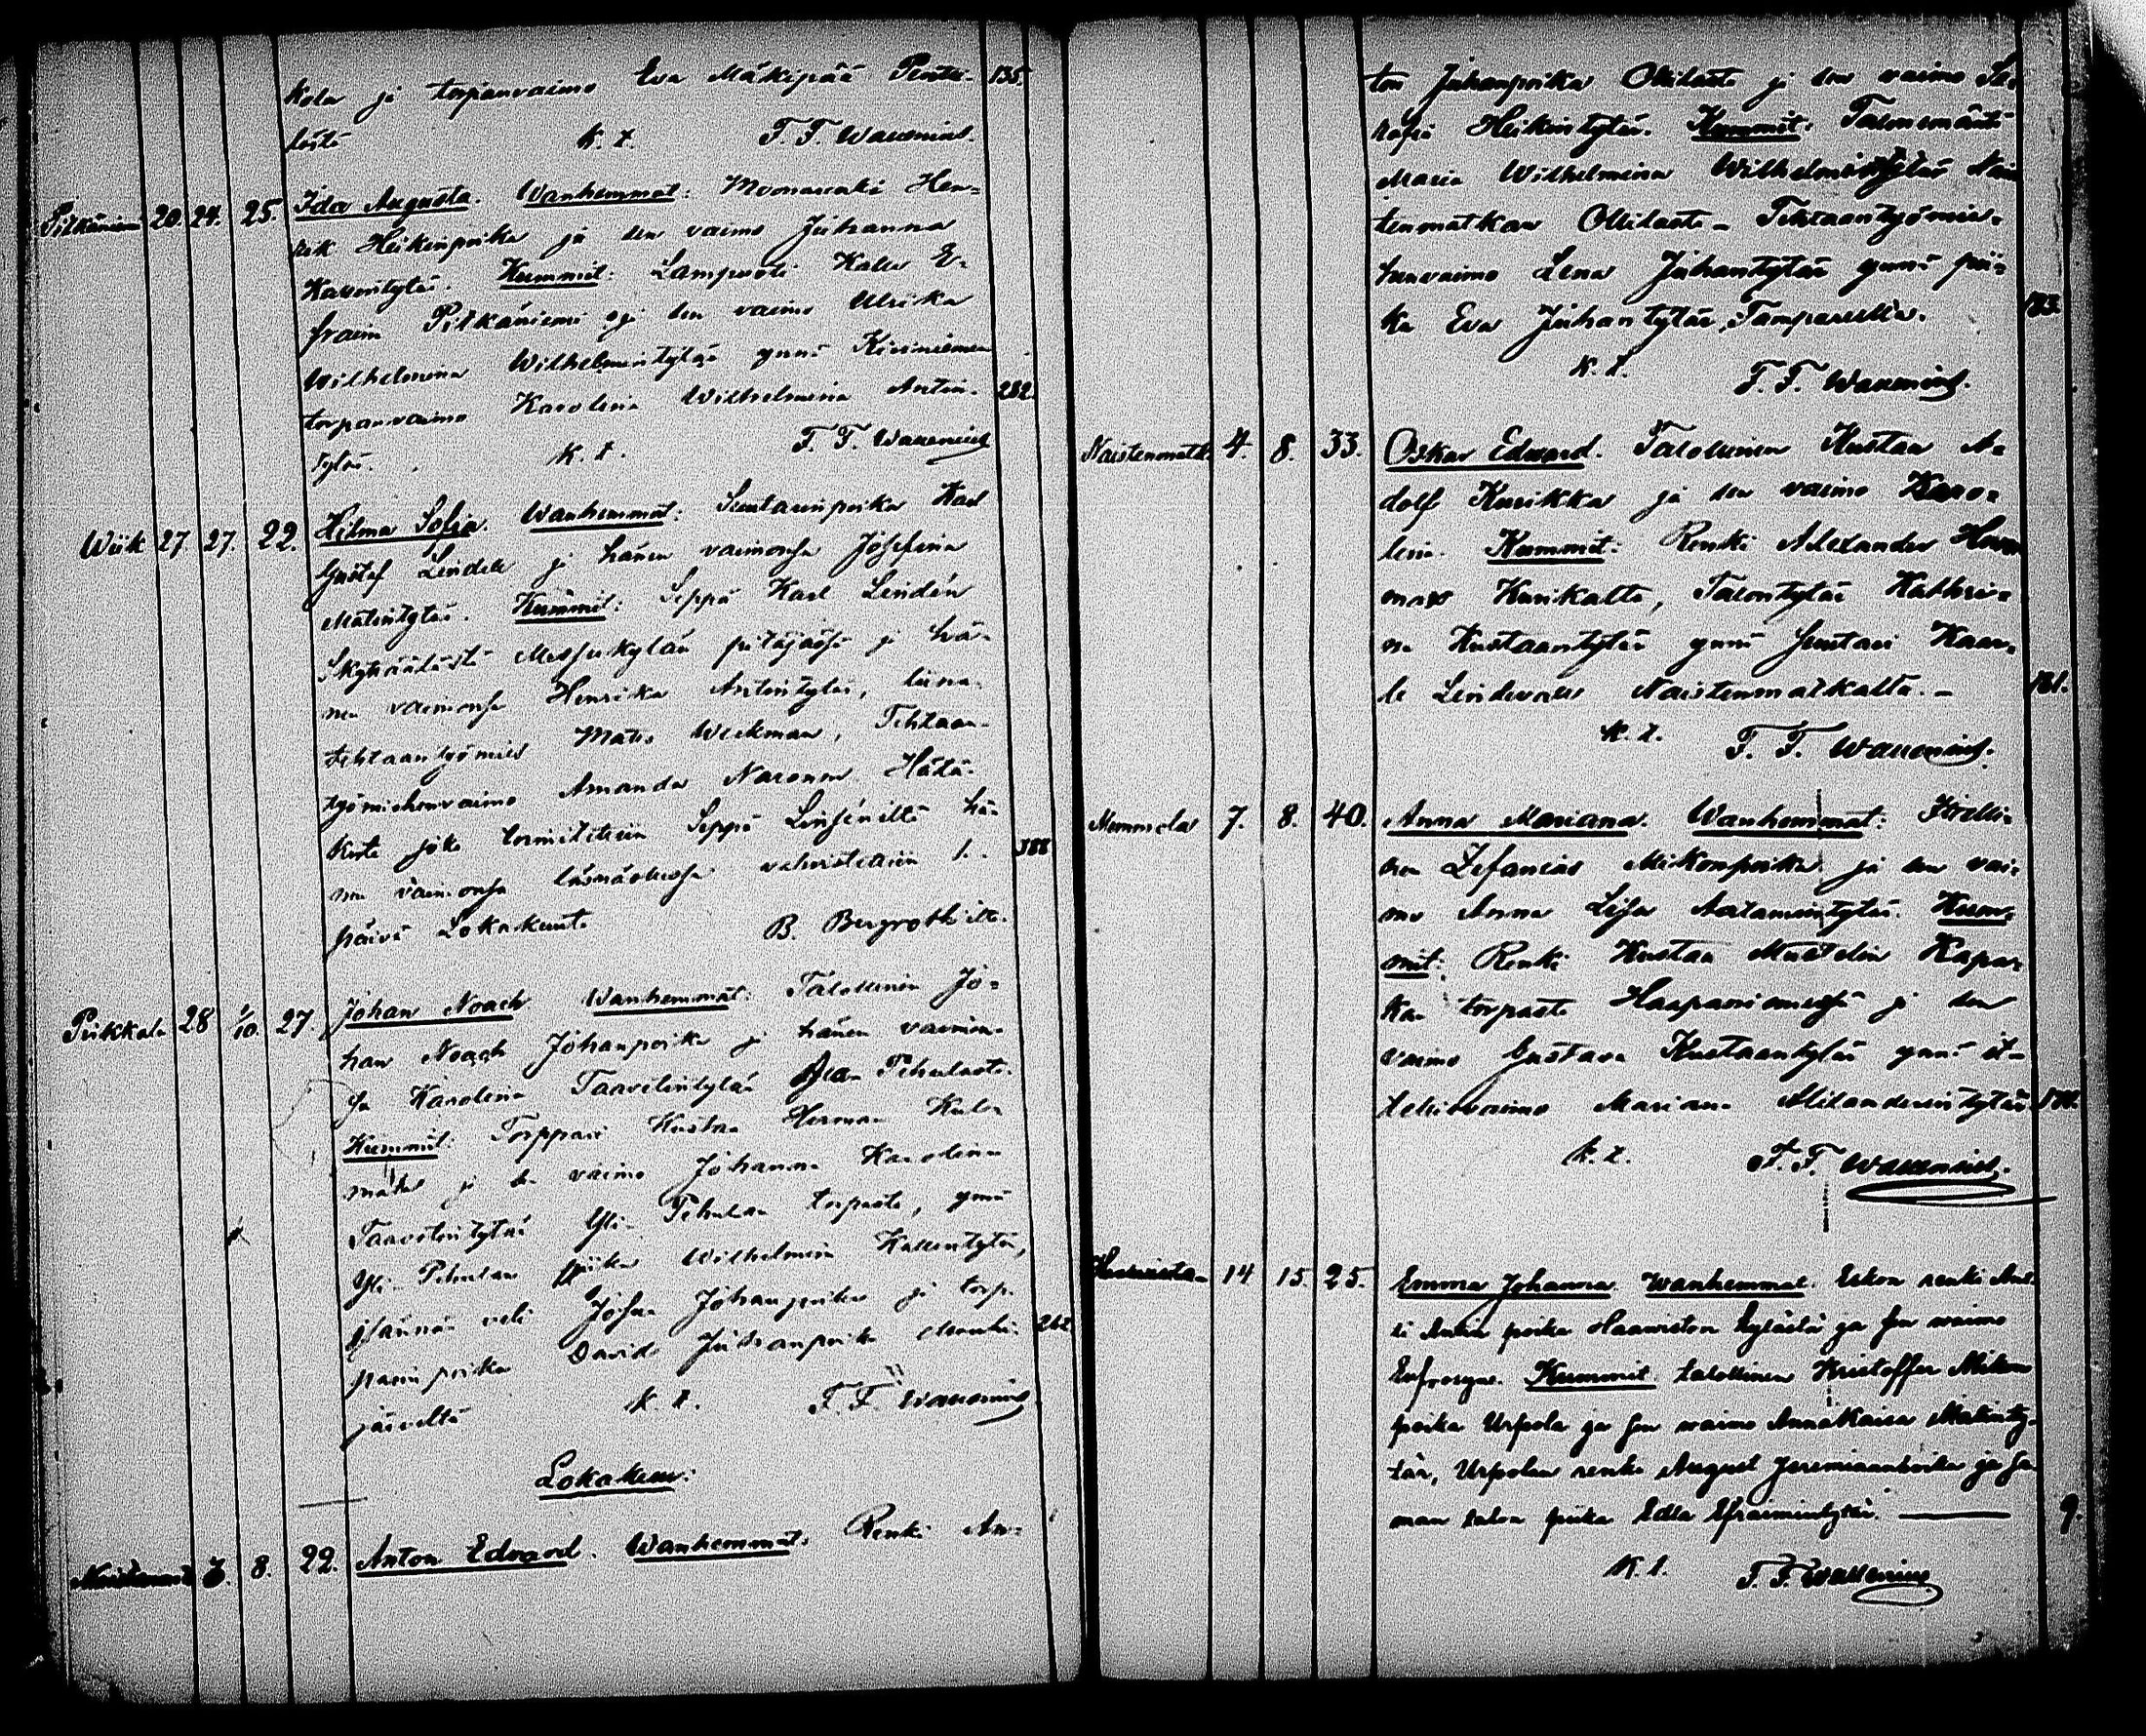 kola ja torpanvaimo Eva Mäkipää Pentti- 135.
löstä k. t. F. F. Wallenius.
Pitkäniemi 20. 24. 25. Ida Augusta. Wanhemmat: Muonarenki Hen-
rik Heikinpoika ja sen vaimo Juhanna
Kallentytär. Kummit: Lampuoti Kalle E-
fraim Pitkäniemi ja sen vaimo Ulrika
Wilhelmina Wilhelmintytär ynnä Kiviniemen
torpanvaimo Karolina Wilhelmina Antin- 282.
tytär. k. t. F. F. Wallenius
Wiik 27. 27. 22. Hilma Sofia. Wanhemmat: Suutarinpoika Karl
Gustaf Lindell ja hänen vaimonsa Josefina
Matintytär. Kummit: Seppä Karl Lindén
Messukylän pitäjästä ja hä-
nen vaimonsa Henrika Antintytär, liina-
tehtaantyömies Matts Wickman, Tehtaan-
työmiehenvaimo Amanda Naronen Hätä-
kaste joka toimitettiin Seppä Lindéniltä hä-
nen vaimonsa läsnäollessa vahvistettiin 1.. 388
päivä Lokakuuta B. Bergroth'ilta.
Pirkkala 28 1/10. 27. Johan Noach Wanhemmat: Talollinen Jo-
han Noach Johanpoika ja hänen vaimon-
sa Karolina Taavetintytär Pehulasta.
Kummit: Torppari Kustaa Herman Kulo-
ja sen vaimo Johanna Karolina
Taavetintytär Yli Pehulan torpasta, ynnä
Yli Pehulan piika Wilhelmina Kallentytär,
isännän veli Josua Johanpoika ja torp- 262
parin poika David Juhanpoika
järveltä k. t. F. F. Wallenius
Lokakuu.
8. 22. Anton Edvard. Wanhemmat: Renki An-
ton Juhanpoika Ollilasta ja sen vaimo Se-
rafia Heikintytär. Kummit: Talonemäntä
Maria Wilhelmina Wilhelmintytär Nais-
tenmatkan Ollilasta - Tehtaantyömie-
henvaimo Lena Juhantytär ynnä pii-
ka Eva Juhantytär, Tampereelta. 183.
k. t. F. F. Wallenius.
Naistenmatk. 4. 8. 33. Oskar Edvard. Talollinen Kustaa A-
dolf Kurikka ja sen vaimo Karo-
liina. Kummit: Renki Alexander
Kurikalta, Talontytär Kathri-
na Kustaantytär ynnä suutari Kaar-
le Naistenmatkalta. - 181.
k. t. F. F. Wallenius.
Nemmela 7. 8. 40. Anna Mariana. Wanhemmat: Itselli-
nen Zefanias Mikonpoika ja sen vai-
mo Anna Lisa Aatamintytär. Kum-
mit: Renki Kustaa Mustelin
torpasta Haapaniemestä ja sen
vaimo Gustava Kustaantytär ynnä it-
sellisvaimo Mariana Alexanderintytär
k. t. F. F. Wallenius.
Haavisto 14 15. 25. Emma Johanna. Wanhemmat. Eskon renki Ant-
ti Antin poika Haaviston kylästä ja sen waimo
Eufrosyne. Kummit talollinen Kristoffer Mikon
poika Urpola ja sen waimo Annakaisa Matinty-
tär, Urpolan renki August Jeremiaanpoika ja sa-
man talon piika Edla Efraimintytär. 9.
k. t. F. F. Wallenius